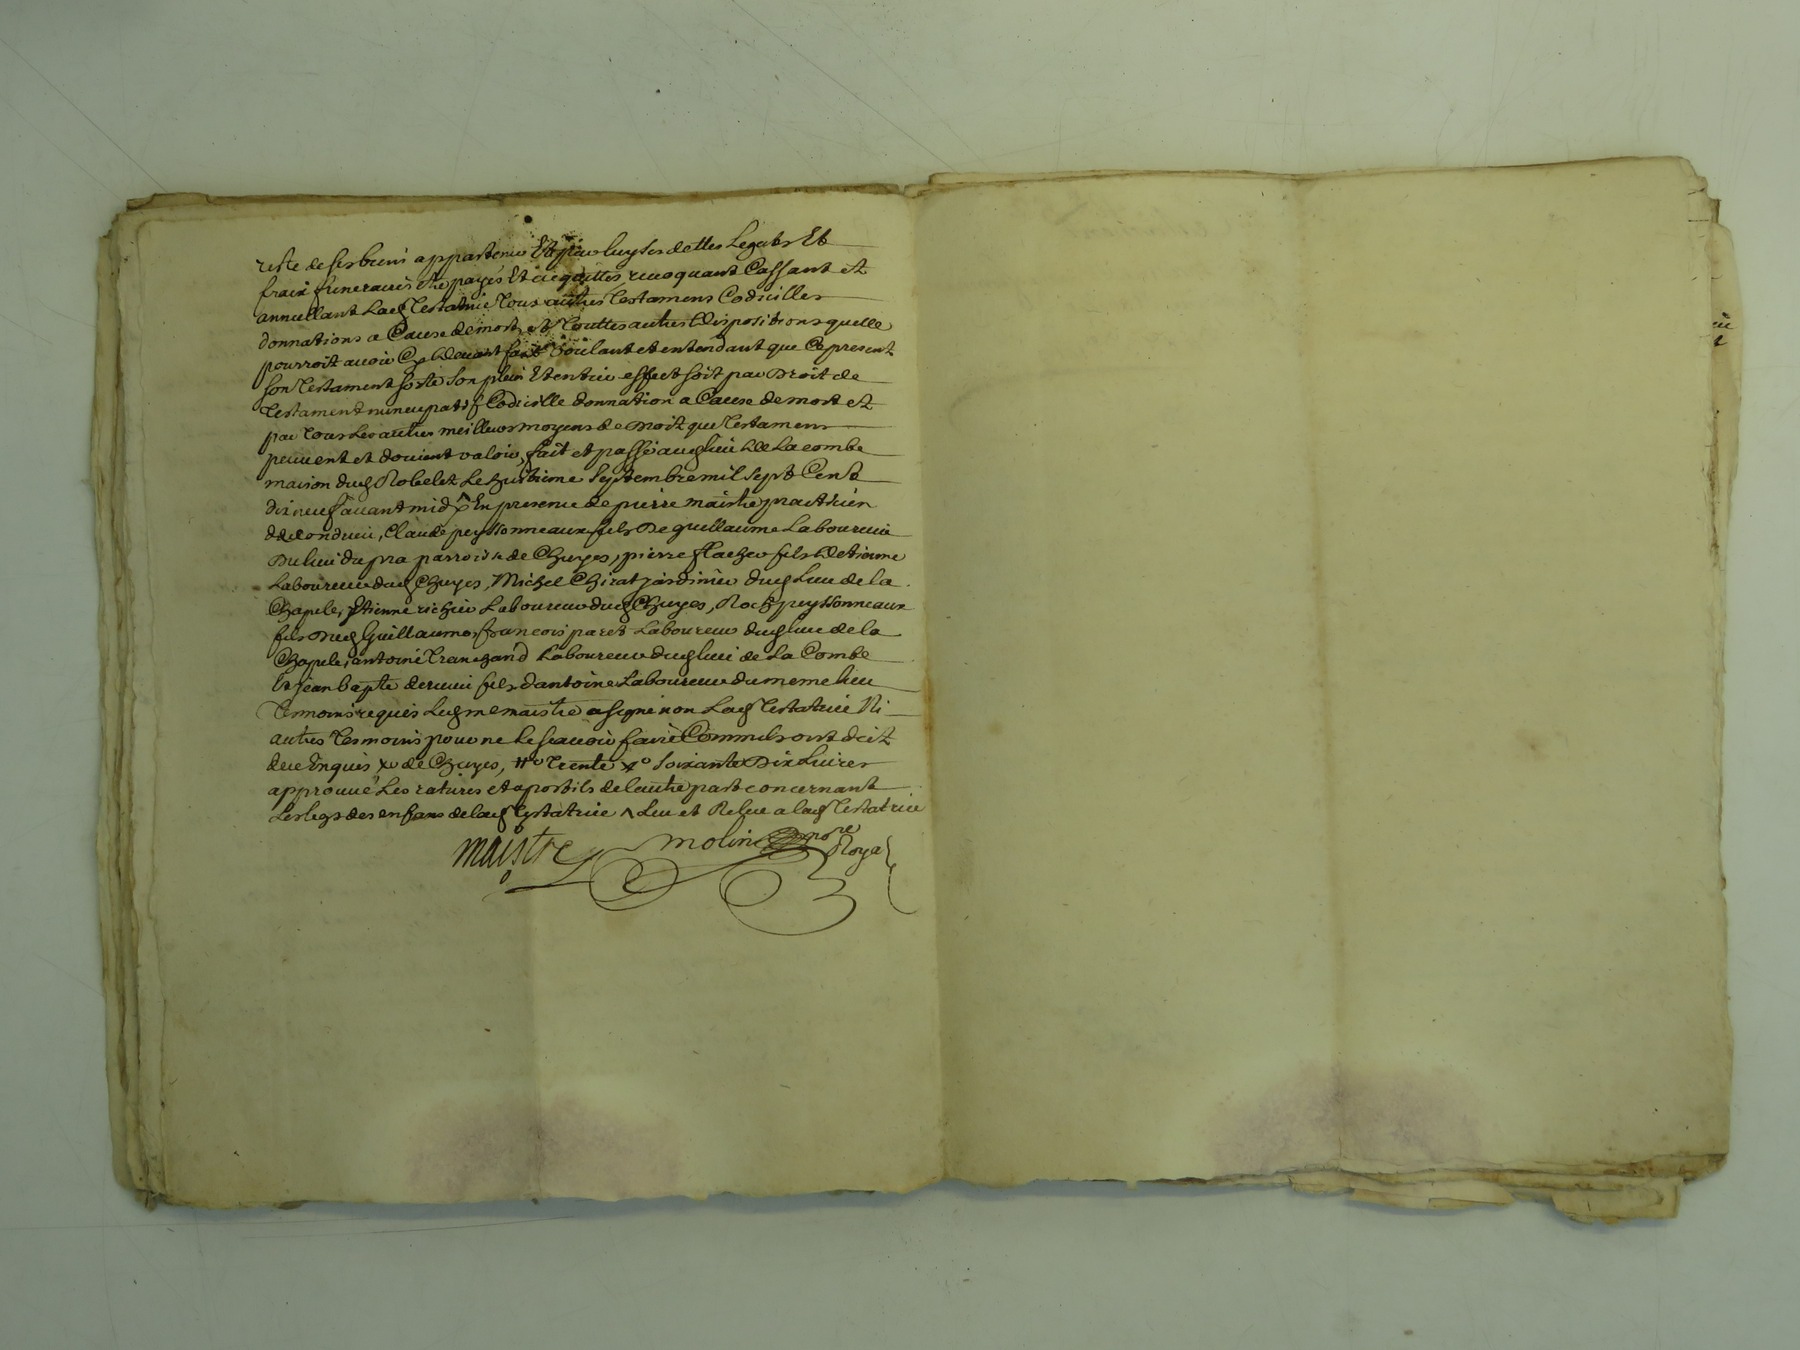 reste de ses biens appartenir Et par luy ses dettes Legats Et
fraix funeraires etre payés Et acquittés revoquant Cassant et
annullant Lad Testatrice Tous autres Testamens Codicilles
donnations a Cause de mort et Touttes autres Dispositions quelle
pourroit avoir Cy devant fait Voulant et entendant que Ce present
son Testament sorte son plein Et entier effect soit par Droit de
Testament nuncupatif Codicille donnation a Cause de mort et
par Tous Les autres meilleurs moyens de Droit que Testamens
peuvent et doivent valoir, fait et passé aud lieu de La combe
maison dud Robelet Le huitieme Septembre mil sept Cents
dix neuf avant midy En presence de pierre maistre praticien
de Condrieu, Claude peyssonneaux fils De guillaume Laboureur
Du lieu du pra parroisse de Chuyes, pierre flacher fils Detienne
Laboureur dud Chuyes, Michel Chirat jardinier dud Lieu de la
Chapele, Etienne richier Laboureur dud Chuyes, Roch peyssonneaux
fils Dud Guillaume, francois paret Laboureur dud lieu de la
Chapele, antoine Tranchand Laboureur dud lieu de La Combe
Et jean bapte fils dantoine Laboureur du meme lieu
Temoins requis Led me maistre a signé non Lad Testatrice Ni
autres Tesmoins pour ne le scavoir faire Comme ils ont dit
de ce Enquis, de Chuyes, Trente Soixante Dix Livres
approuvé Les ratures et apostils de lautre part concernant
Les legs des enfans de lad Testatrice Leu et Releu a lad Testatrice
maistre molin nore
Royal